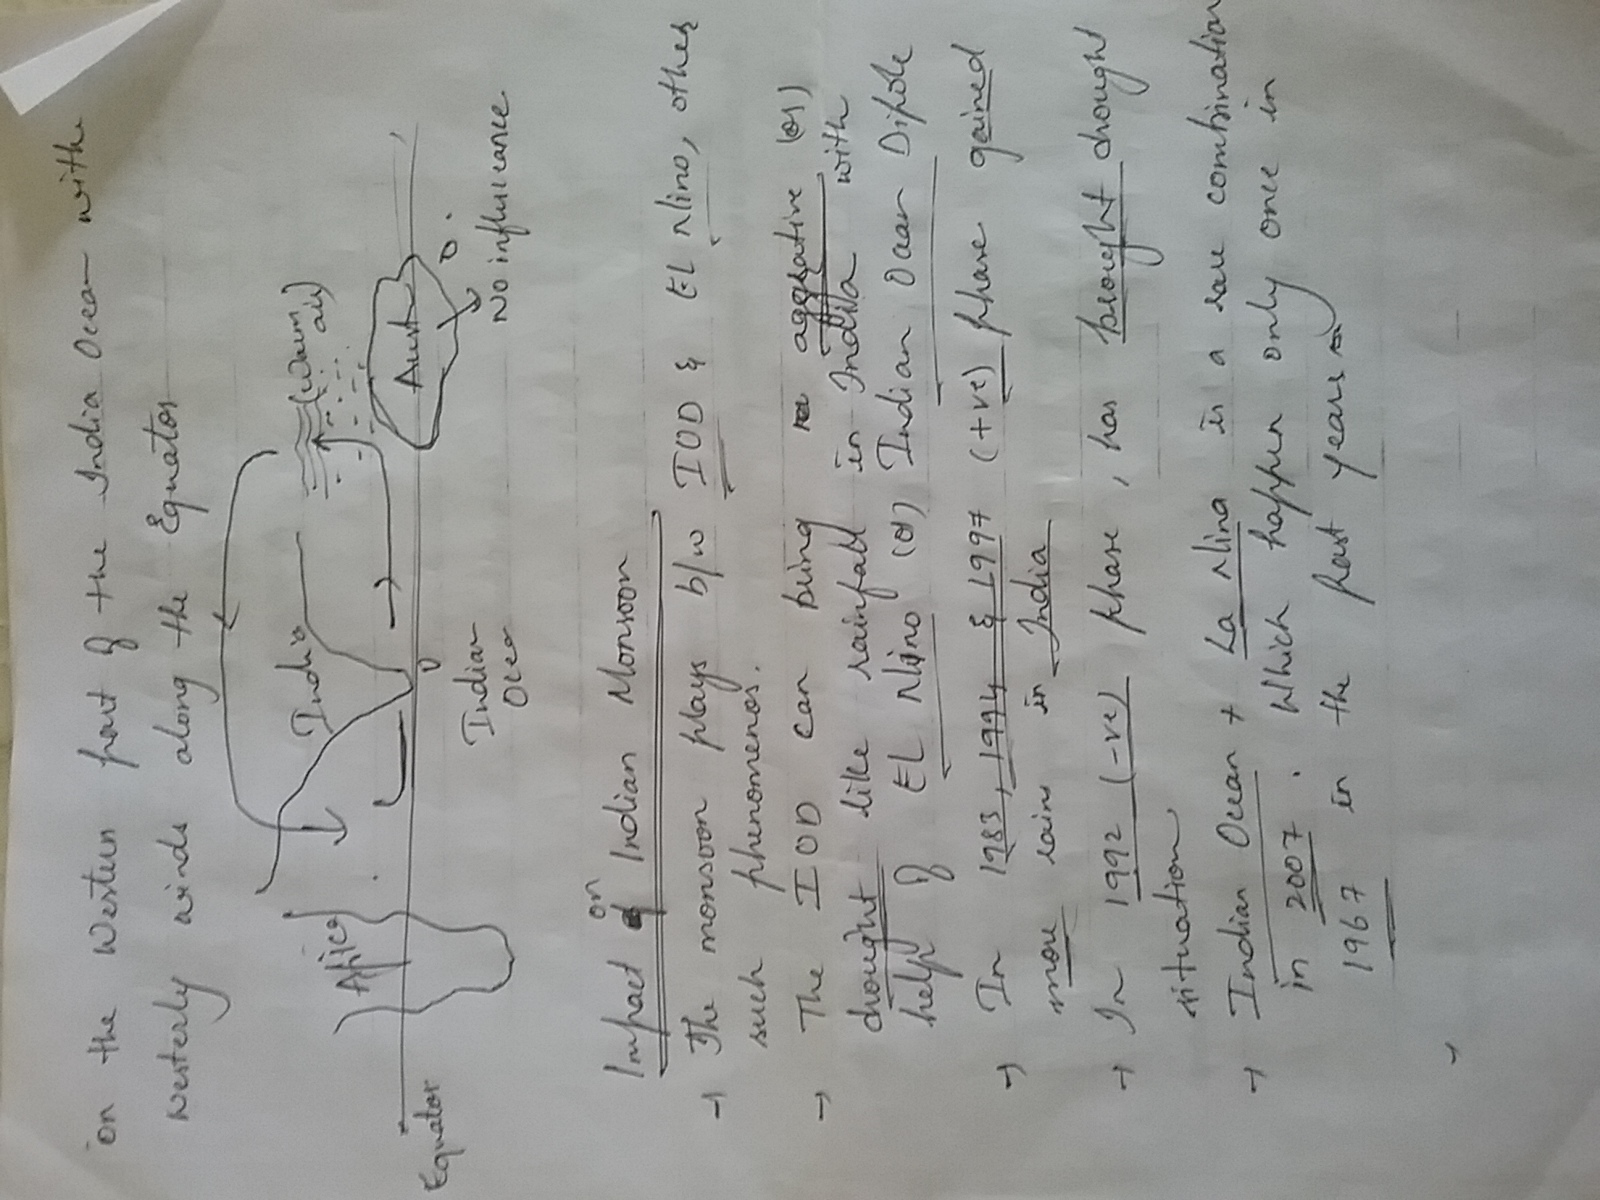 on the western part of the India Ocean with
westerly winds along the Equator
(Warm
air)
India
Africa
Aust
Equator
Indian
Ocea
No influcance
Impact on Indian Monsoon
→ The monsoon plays b/w IOD & EL Nino, other
such phenomenos.
→ The IOD can being aggrative (or)
drought like rainfall in India with
help of EL Nino (or) Indian Ocean Dipole
→ In 1983, 1994 & 1997 (+ve) phase gained
more rains in India
→ In 1992 (-ve) phase, has brought drought
situation
→ Indian Ocean + La Nina is a rare combination
in 2007. Which happen only once in
1967 in the past years
→